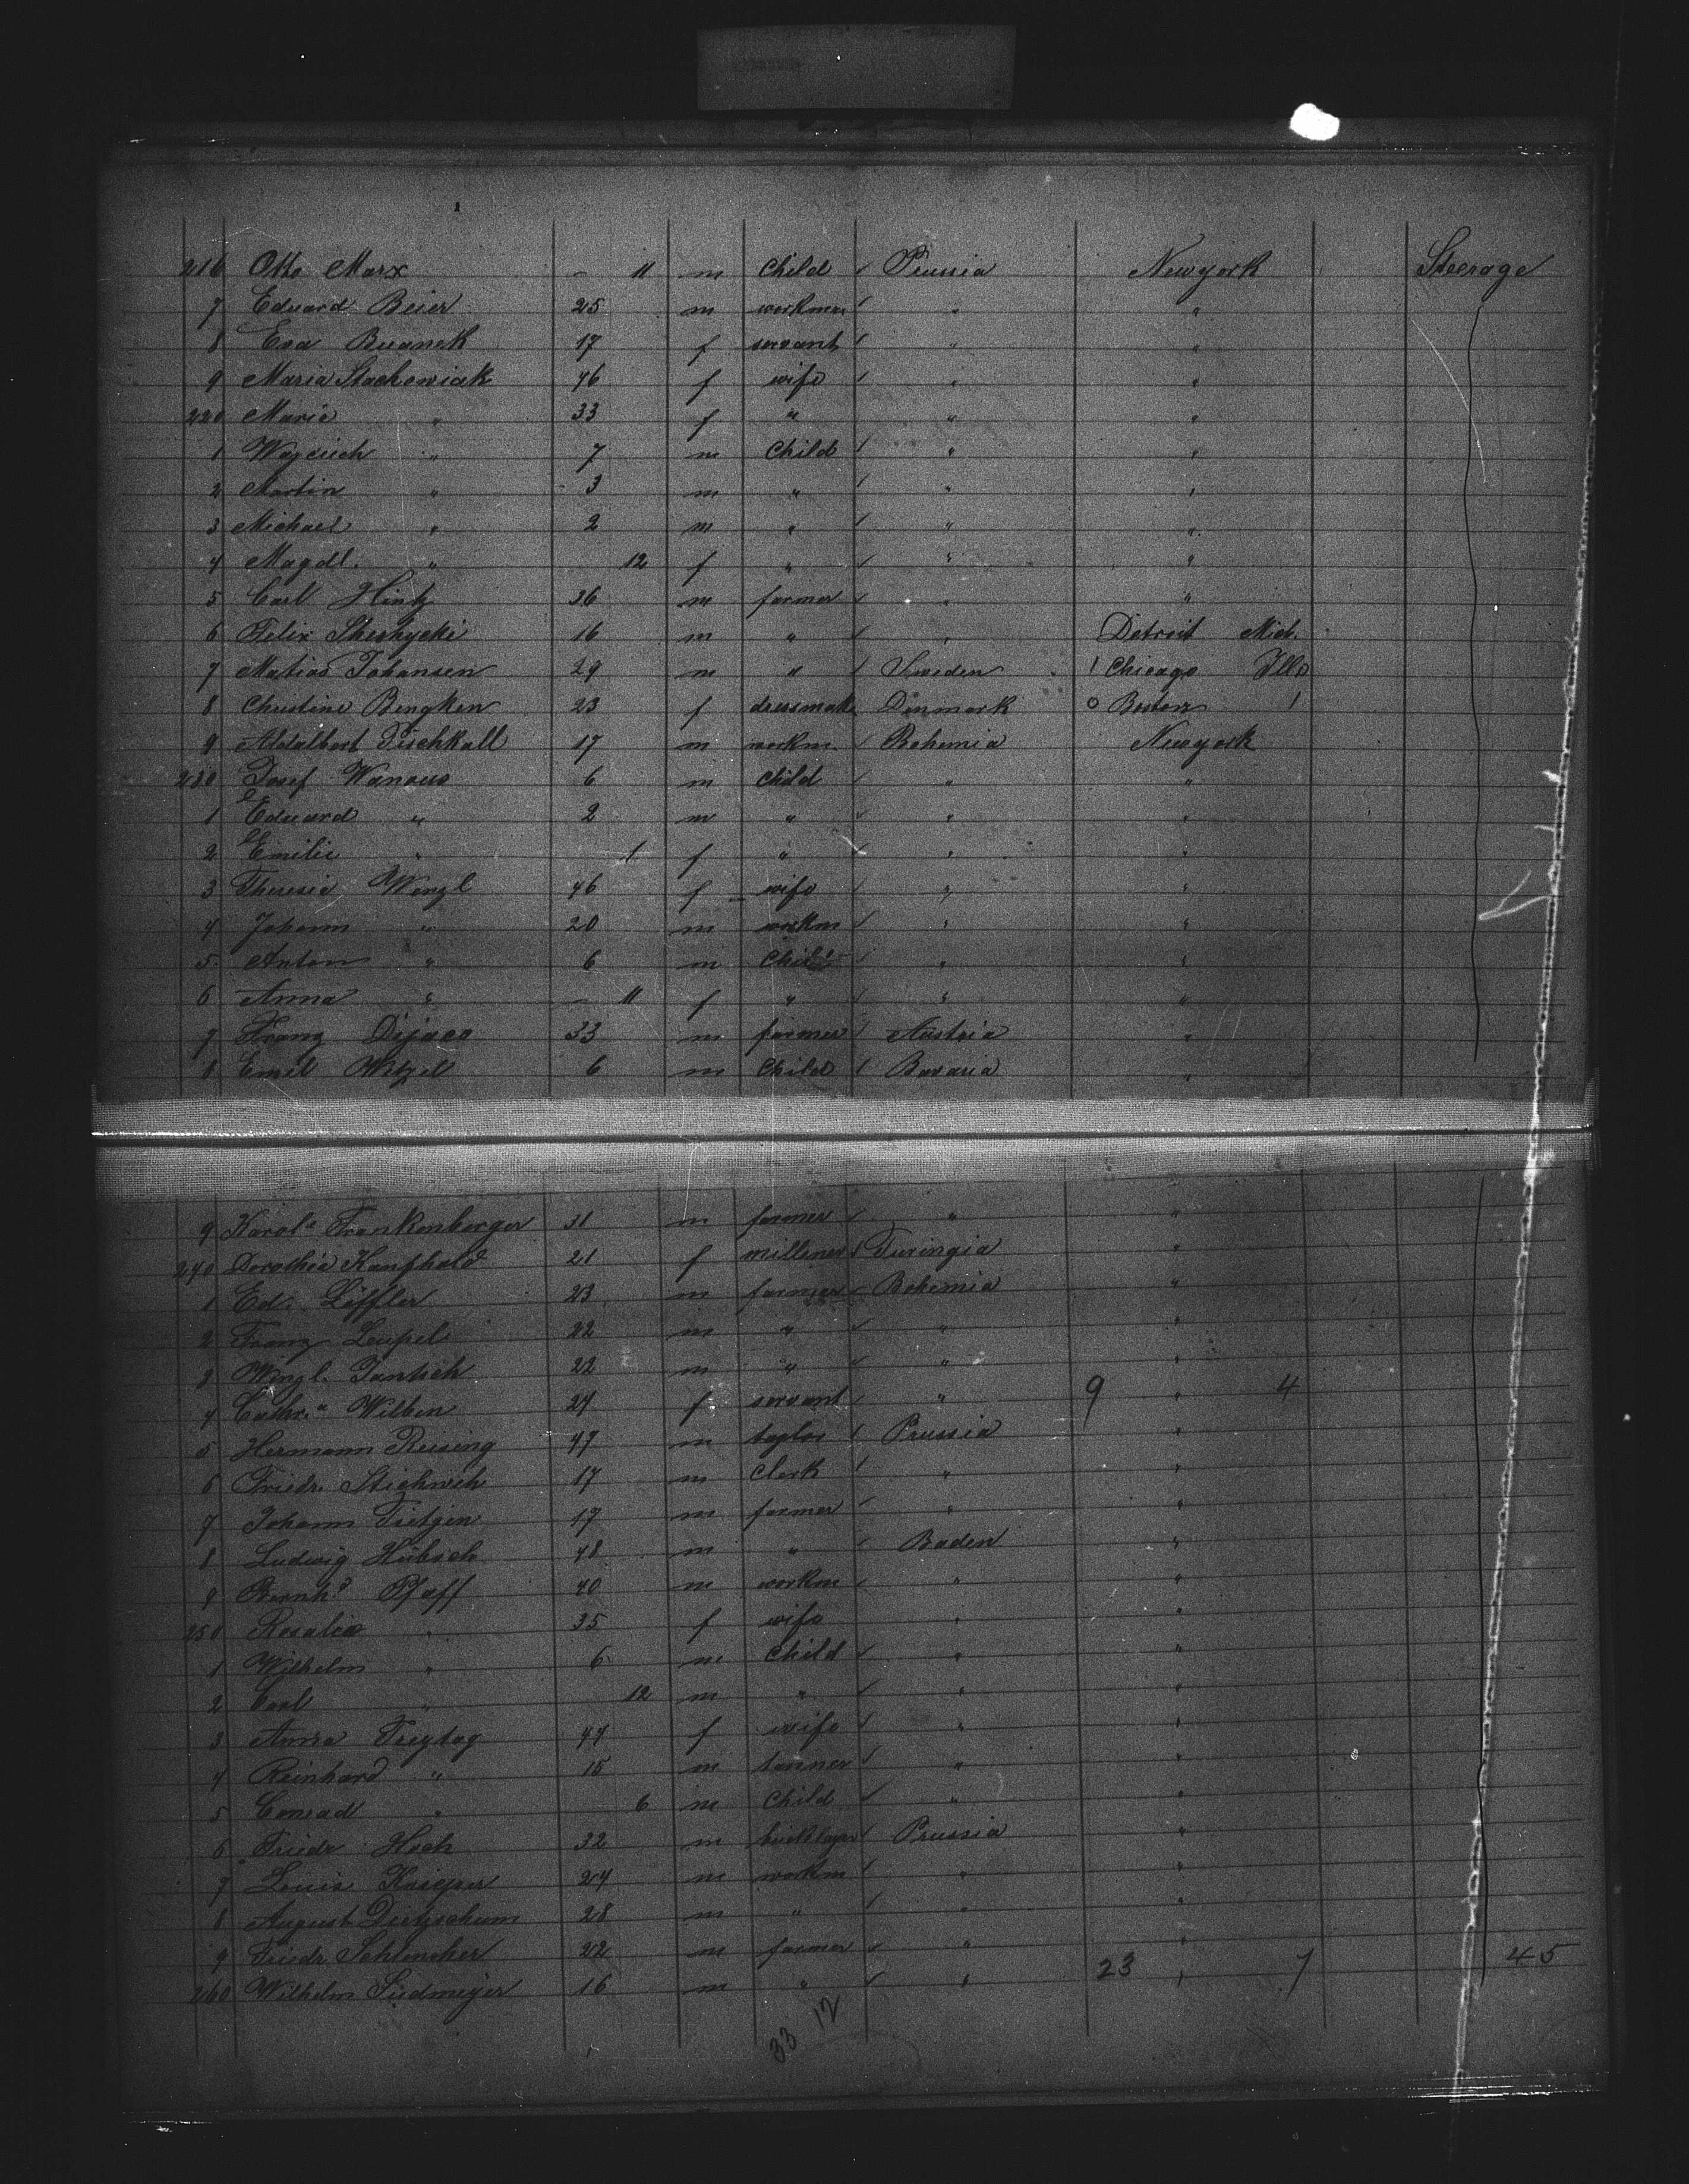 216 Otto Marx - 11 m Child / Prussia Newyork Steerage
7 Eduard Beier 25 m workman / " "
8 Eva Buanek 17 f servant / " "
9 Maria Stachowiak 46 f wife / " "
220 Maria " 33 f " " "
1 " 7 m Child / " "
2 Martin " 3 m " / " "
3 Michael " 2 m " / " "
4 Magdl. " 12 f " / " "
5 Carl Hintz 36 m farmer / " "
6 Felix 16 m " / " Detroit Mich.
7 Matias Johansen 29 m " / Sweden Chicago Ills
8 Christine Bengken 23 f dressmake Denmark o Boston
9 Adalbert Tischkall 17 m workm. / Bohemia Newyork
230 Josef Wanous 6 m child / " "
1 Eduard " 2 m " / " "
2 Emilie " 1 f " / " "
3 Theresia Wenzl 46 f wife / " "
4 Johann " 20 m workm / " "
5 Anton " 6 m Child / " "
6 Anna " - 11 f " / " "
7 Franz 33 m farmer / Austria "
8 Emil Witzel 6 m Child / Bavaria "
9 Karol. Frankenberger 31 m farmer / " "
240 Dorothea 21 f milliner / Turingia "
1 Ed. Löffler 23 m farmer / Bohemia "
2 Franz 22 m " / " "
3 Wenzl. Jantsch 22 m " / " "
4 Cathr.a Wilben 24 f servant / " 9 " 4
5 Hermann Reising 47 m taylor / Prussia "
6 Friedr. Stichweh 17 m Clerk / " "
7 Johann Tietjen 17 m farmer / " "
8 Ludwig Hübsch 48 m " / Baden "
9 Bernhd Pfaff 40 m workm / " "
250 Rosalia " 35 f wife " "
1 Wilhelm " 6 m Child / " "
2 Carl " 12 m " / " "
3 Anna Freytag 44 f wife / " "
4 Reinhard " 15 m tanner / " "
5 Conrad " 6 m Child / " "
6 Friedr. Hoch 32 m / Prussia "
7 Louis 24 m workm / " "
8 August 28 m " / " "
9 Friedr. 22 m farmer / " "
260 Wilhelm Südmeyer 16 m " / " 23 " 7 45
33 12